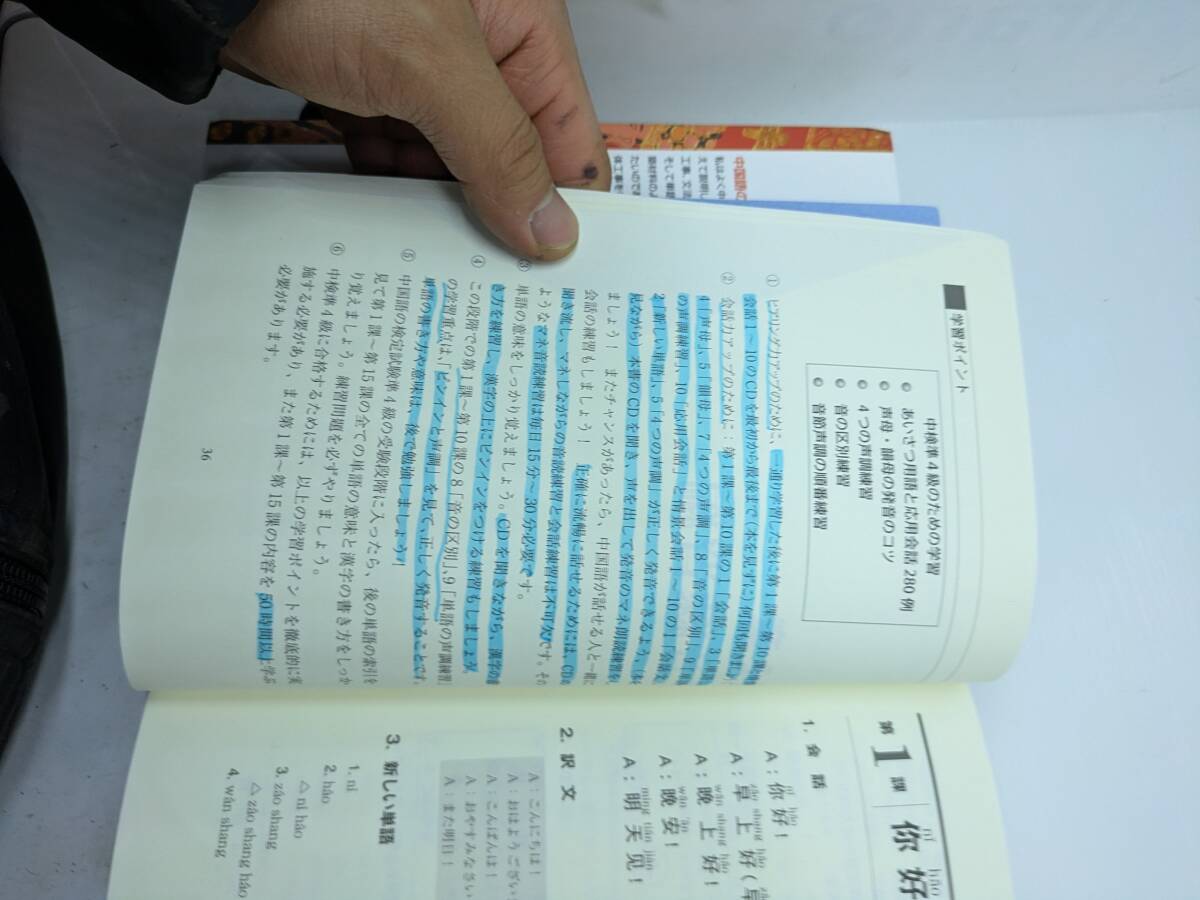 学習ポイント
中検準4級のための学習
● あいさつ用語と応用会話280例
● 声母・韻母の発音のコツ
● 4つの声調練習
● 音の区別練習
● 音節声調の順番練習
① ヒアリング力アップのために、一通り学習した後に第1課～第10課の
会話1～10のCDを最初から最後まで（本を見ずに）何回も聞きま
② 会話力アップのために：第1課～第10課の1「会話」、3「単語
4「声母」、5「韻母」、7「4つの声調」、8「音の区別」、9「単語
の声調練習」、10「応用会話」と情景会話1～10の1「会話」
2「新しい単語」、5「4つの声調」が正しく発音できるよう、（本を
見ながら）本書のCDを聞き、声を出して発音のマネ朗読練習を
ましょう！ またチャンスがあったら、中国語が話せる人と一緒に
会話の練習もしましょう！ 正確に流暢に話せるためには、CDの
聞き流し、マネしながらの音読練習と会話練習は不可欠です。その
ようなマネ音読練習は毎日15分～30分必要です。
③ 単語の意味をしっかり覚えましょう。CDを聞きながら、漢字の書
き方を練習し、漢字の上にピンインをつける練習もしましょう。
④ この段階での第1課～第10課の8「音の区別」、9「単語の声調練習」
の学習重点は、「ピンインと声調」を見て、正しく発音することです。
単語の書き方や意味は、後で勉強しましょう！
⑤ 中国語の検定試験準4級の受験段階に入ったら、後の単語の索引を
見て第1課～第15課の全ての単語の意味と漢字の書き方をしっか
り覚えましょう。練習問題を必ずやりましょう。
⑥ 中検準4級に合格するためには、以上の学習ポイントを徹底的に実
施する必要があり、また第1課～第15課の内容を50時間以上学ぶ
必要があります。
36
第1課
nǐ hǎo
你好
1. 会 話
nǐ hǎo
A：你好！
zǎo shang hǎo zǎo
A：早上好（早
wǎn shang hǎo
A：晚上好！
wǎn ān
A：晚安！
míng tiān jiàn
A：明天见！
2. 訳 文
A：こんにちは！
A：おはようござい
A：こんばんは！
A：おやすみなさい
A：また明日！
3. 新しい単語
1. nǐ
2. hǎo
△ nǐ hǎo
3. zǎo shang
△ zǎo shang hǎo
4. wǎn shang
中国語の
私はよく中
えて説明し
工事、文法
そして単語
築材料のよ
たいのでき
体工事を